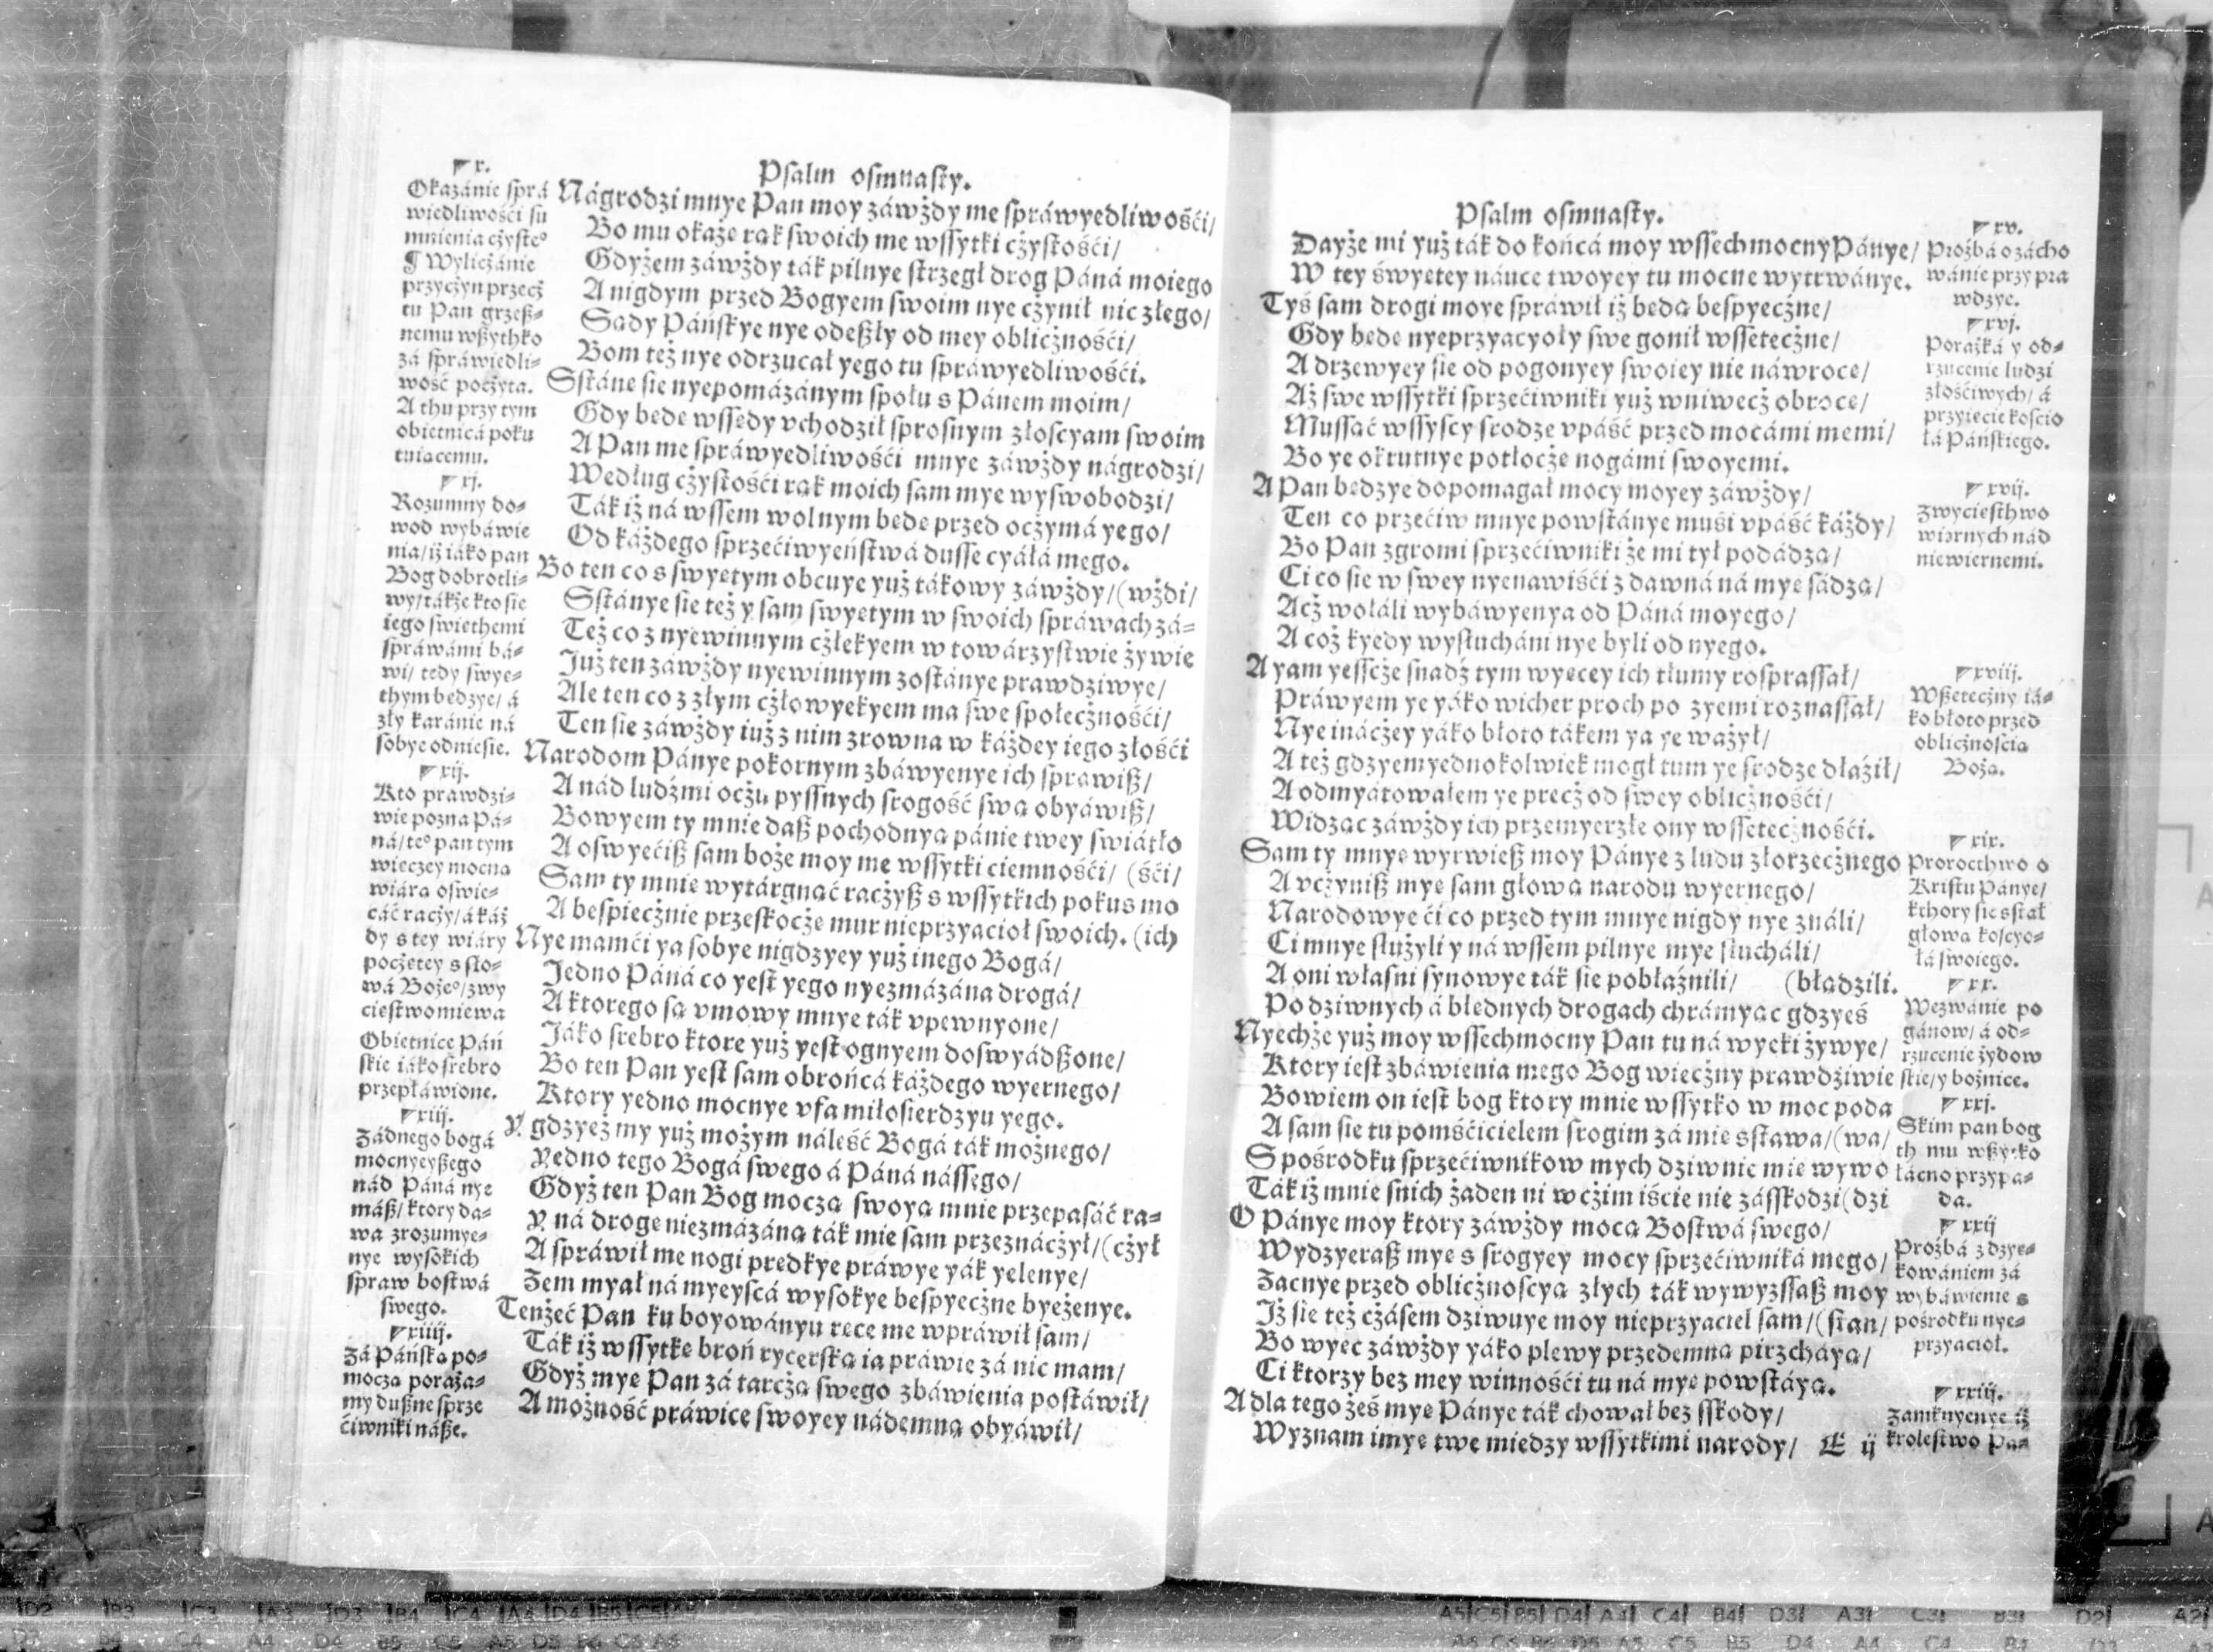 Psalm osmnasty.
▛ x.
Okazánie sprá
wiedliwośći su
mnienia cżysteº
¶ Wylicżánie
przycżyn przecż
tu Pan grzeß⸗
nemu wßythko
zá spráwiedli⸗
wość pocżyta.
A thu przy tym
obietnicá poku
tuiącemu.
▛ xj.
Rozumny do⸗
wod wybáwie
nia/ iż iáko pan
Bog dobrotli⸗
wy/ tákże kto sie
iego swiethemi
spráwámi bá⸗
wi/ tedy swye⸗
thym bedzye/ á
zły karánie ná
sobye odniesie.
▛ xij.
Kto prawdzi⸗
wie pozna Pá⸗
ná/ teº pan tym
wieczey mocną
wiárą oświe⸗
cáć racży/ á káż
dy s tey wiáry
pocżetey s sło⸗
wá Bożeº/ zwy
ciestwo miewa
Obietnice Páń
skie iáko srebro
przepłáwione.
▛ xiij.
Żadnego bogá
mocnyeyßego
nád Páná nye
máß/ ktory da⸗
wa zrozumye⸗
nye wysokich
spraw bostwá
swego.
▛ xiiij.
Zá Páńską po⸗
moczą poraża⸗
my dußne sprze
ćiwniki náße.
Nágrodzi mnye Pan moy záwżdy me spráwyedliwośći/
Bo mu okaże rąk swoich me wssytki cżystośći/
Gdyżem záwżdy ták pilnye strzegł drog Páná moiego
A nigdym przed Bogyem swoim nye cżynił nic złego/
Sądy Páńskye nye odeßły od mey oblicżnośći/
Bom też nye odrzucał yego tu spráwyedliwośći.
Sstáne sie nyepomázánym społu s Pánem moim/
Gdy bede wssędy vchodził sprosnym złoscyam swoim
A Pan me spráwyedliwośći mnye záwżdy nágrodzi/
Według cżystośći rąk moich sam mye wyswobodzi/
Ták iż ná wssem wolnym bede przed ocżymá yego/
Od káżdego sprzećiwyeństwá dusse cyáłá mego.
Bo ten co s swyetym obcuye yuż tákowy záwżdy/ (wżdi/
Sstánye sie też y sam swyetym w swoich spráwach zá⸗
Też co z nyewinnym cżłekyem w towárzystwie żywie
Już ten zawżdy nyewinnym zostánye prawdziwye/
Ale ten co z złym cżłowyekyem ma swe społecżnośći/
Ten sie záwżdy iuż z nim zrowna w káżdey iego złośći
Narodom Pánye pokornym zbáwyenye ich sprawiß/
A nád ludźmi ocżu pyssnych srogość swą obyáwiß/
Bowyem ty mnie daß pochodnyą pánie twey swiátło
A oswyećiß sam boże moy me wssytki ciemnośći/ (śći/
Sam ty mnie wytárgnąć racżyß s wssytkich pokus mo
A bespiecżnie przeskocże mur nieprzyacioł swoich. (ich
Nye mamći ya sobye nigdzyey yuż inego Bogá/
Jedno Páná co yest yego nyezmázána drogá/
A ktorego są vmowy mnye ták vpewnyone/
Jáko srebro ktore yuż yest ognyem doswyádßone/
Bo ten Pan yest sam obrońcá káżdego wyernego/
Ktory yedno mocnye vfa miłosierdzyu yego.
Y gdzyeż my yuż możym náleść Bogá ták możnego/
Yedno tego Bogá swego á Páná nássego/
Gdyż ten Pan Bog moczą swoyą mnie przepasáć ra⸗
Y ná droge niezmázáną ták mie sam przeznácżył/ (cżył
A spráwił me nogi predkye práwye yák yelenye/
Żem myał ná myeyscá wysokye bespyecżne byeżenye.
Tenżeć Pan ku boyowányu rece me wpráwił sam/
Ták iż wssytke broń rycerską ia práwie zá nic mam/
Gdyż mye Pan zá tarcżą swego zbáwienia postáwił/
A możność práwice swoyey nádemną obyáwił/
Psalm osmnasty.
Dayże mi yuż ták do końcá moy wssechmocny Pánye/
W tey świyetey náuce twoyey tu mocne wytrwánye.
Tyś sam drogi moye spráwił iż bedą bespyecżne/
Gdy bede nyeprzyacyoły swe gonił wssetecżne/
A drzewyey sie od pogonyey swoiey nie náwroce/
Aż swe wssytki sprzećiwniki yuż wniwecż obroce/
Mussáć wssyscy srodze vpáść przed mocámi memi/
Bo ye okrutnye potłocże nogámi swoyemi.
A Pan bedzye dopomagał mocy moyey záwżdy/
Ten co przećiw mnye powstánye musi vpáść káżdy/
Bo Pan zgromi sprzećiwniki że mi tył podádzą/
Ci co sie w swey nyenawiśći z dawná ná mye sádzą/
Acż wołáli wybáwyenya od Páná moyego/
A coż kyedy wysłucháni nye byli od nyego.
A yam yesscże snadź tym wyecey ich tłumy rosprassał/
Práwyem ye yáko wicher proch po zyemi roznassał/
Nye inácżey yáko błoto tákem ya ye ważył/
A też gdzyemyednokolwiek mogł tum ye srodze dłáźił/
A odmyátowałem ye precż od swey oblicżnośći/
Widząc záwżdy ich przemyerzłe ony wssetecżnośći.
Sam ty mnye wyrwieß moy Pánye z ludu złorzecżnego
A vcżyniß mye sam głową narodu wyernego/
Narodowye ći co przed tym mnye nigdy nye ználi/
Ci mnye służyli y ná wssem pilnye mye słucháli/
A oni własni synowye ták sie pobłaźnili/ (błądzili.
Po dziwnych á błednych drogach chrámyąc gdzyeś
Nyechże yuż moy wssechmocny Pan tu ná wyeki żywye/
Ktory iest zbáwienia mego Bog wiecżny prawdziwie
Bowiem on iest bog ktory mnie wssytko w moc poda
A sam sie tu pomśćicielem srogim zá mie sstawa/ (wa/
S pośrodku sprzećiwnikow mych dziwnie mie wywo
Ták iż mnie snich żaden ni w cżim iście nie zásskodzi (dzi
O Pánye moy ktory záwżdy mocą Bostwá swego/
Wydzyeraß mye s srogyey mocy sprzećiwniká mego/
Zacnye przed oblicżnoscyą złych ták wywyzssaß moy
Jż sie też cżásem dziwuye moy nieprzyaciel sam/ (stan/
Bo wyec záwżdy yáko plewy przedemną pirzcháyą/
Ci ktorzy bez mey winnośći tu ná mye powstáyą.
A dla tego żeś mye Pánye ták chował bez sskody/
Wyznam imye twe miedzy wssytkimi narody/ E ij
▛ xv.
Proźbá o zácho
wánie przy pra
wdzye.
▛ xvj.
Porażká y od⸗
rzucenie ludzi
złośćiwych/ á
przyiecie kościo
łá Páńskiego.
▛ xvij.
Zwyciesthwo
wiernych nád
niewiernemi.
▛ xviij.
Wßetecżny iá⸗
ko błoto przed
oblicżnoscią
Bożą.
▛ xix.
Prorocthwo o
Kristu Pánye/
kthory sie sstał
głową koscyo⸗
łá swoiego.
▛ xx.
Wezwánie po
gánow/ á od⸗
rzucenie żydow
skie/ y bożnice.
▛ xxj.
Skim pan bog
th mu wßytko
łácno przypa⸗
da.
▛ xxij
Proźbá z dzye⸗
kowániem zá
wybáwienie s
pośrodku nye⸗
przyacioł.
▛ xxiij.
Zamknyenye iż
krolestwo Pá⸗